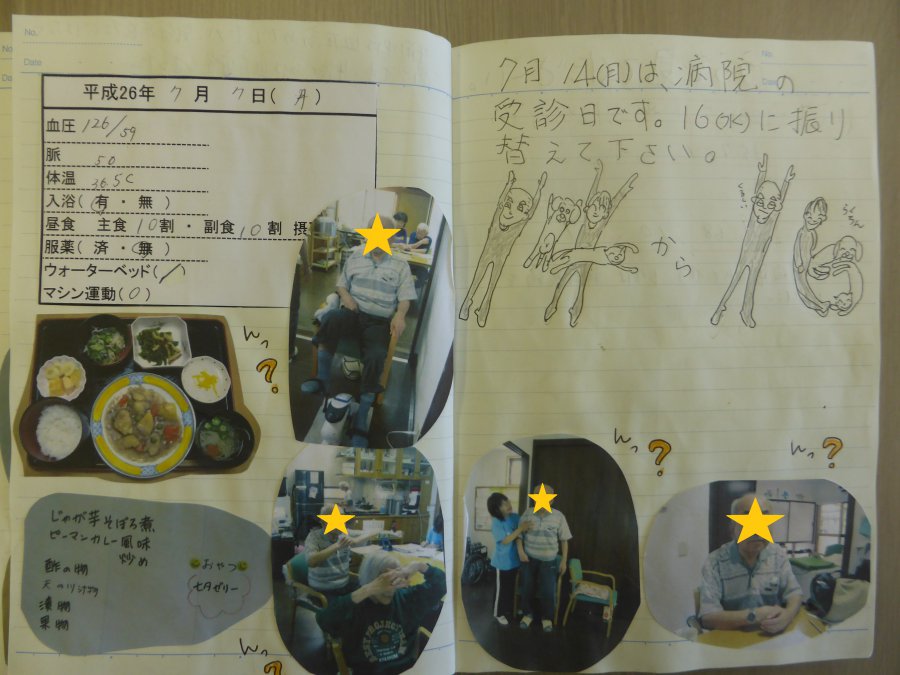 No.
Date
平成26年 7月 7日(月)
血圧 126/59
脈 50
体温 36.5℃
入浴(有・無)
昼食 主食10割・副食10割 摂
服薬(済・無)
ウォーターベッド(/)
マシン運動(〇)
んっ?
じゃが芋そぼろ煮
ピーマンカレー風味
炒め
酢の物
天の川汁物
漬物
果物
おやつ
七夕ゼリー
んっ?
No.
Date
7月 14(月)は、病院の
受診日です。16(水)に振り
替えて下さい。
から
んっ?
んっ?